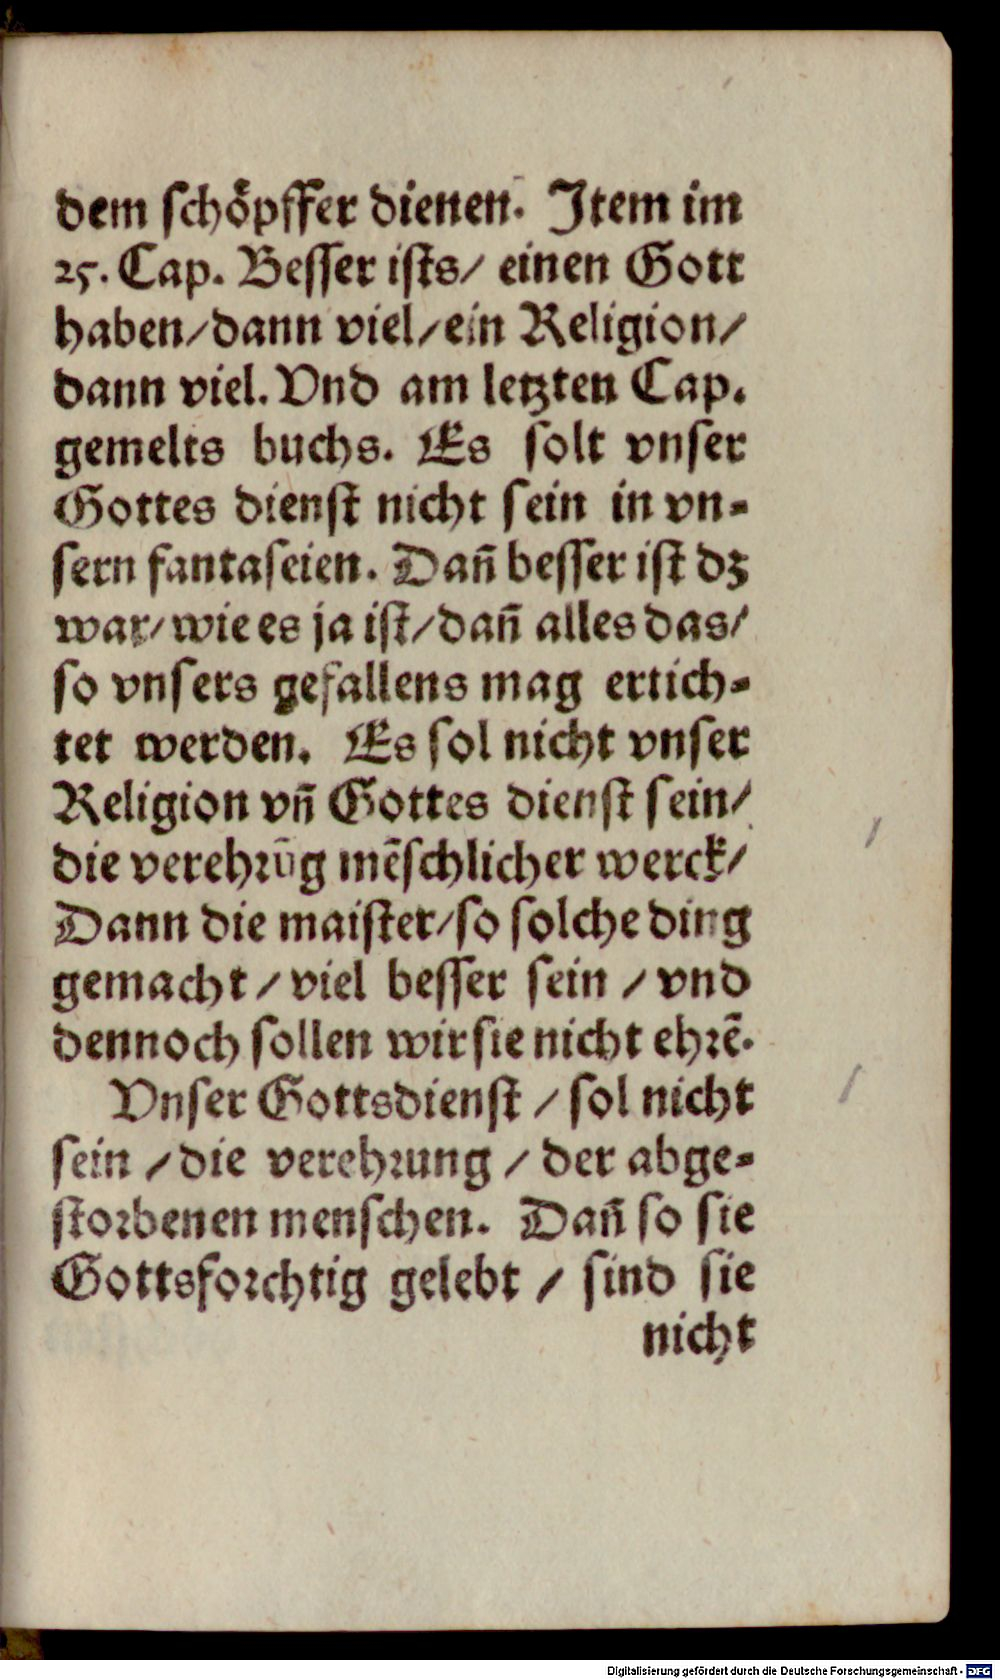 dem schoͤpffer dienen. Item im
25. Cap. Besser ists/ einen Gott
haben/dann viel/ein Religion/
dann viel. Vnd am letzten Cap.
gemelts buchs. Es solt vnser
Gottes dienst nicht sein in vn-
sern fantaseien. Dañ besser ist dz
war/wie es ja ist/dañ alles das/
so vnsers gefallens mag ertich-
tet werden. Es sol nicht vnser
Religion vñ Gottes dienst sein/
die verehrūg mēschlicher werck/
Dann die maister/so solche ding
gemacht/viel besser sein/vnd
dennoch sollen wir sie nicht ehrē.
Vnser Gottsdienst/sol nicht
sein/die verehrung/der abge-
storbenen menschen. Dañ so sie
Gottsforchtig gelebt/sind sie
nicht
Digitalisierung gefördert durch die Deutsche Forschungsgemeinschaft - DFG